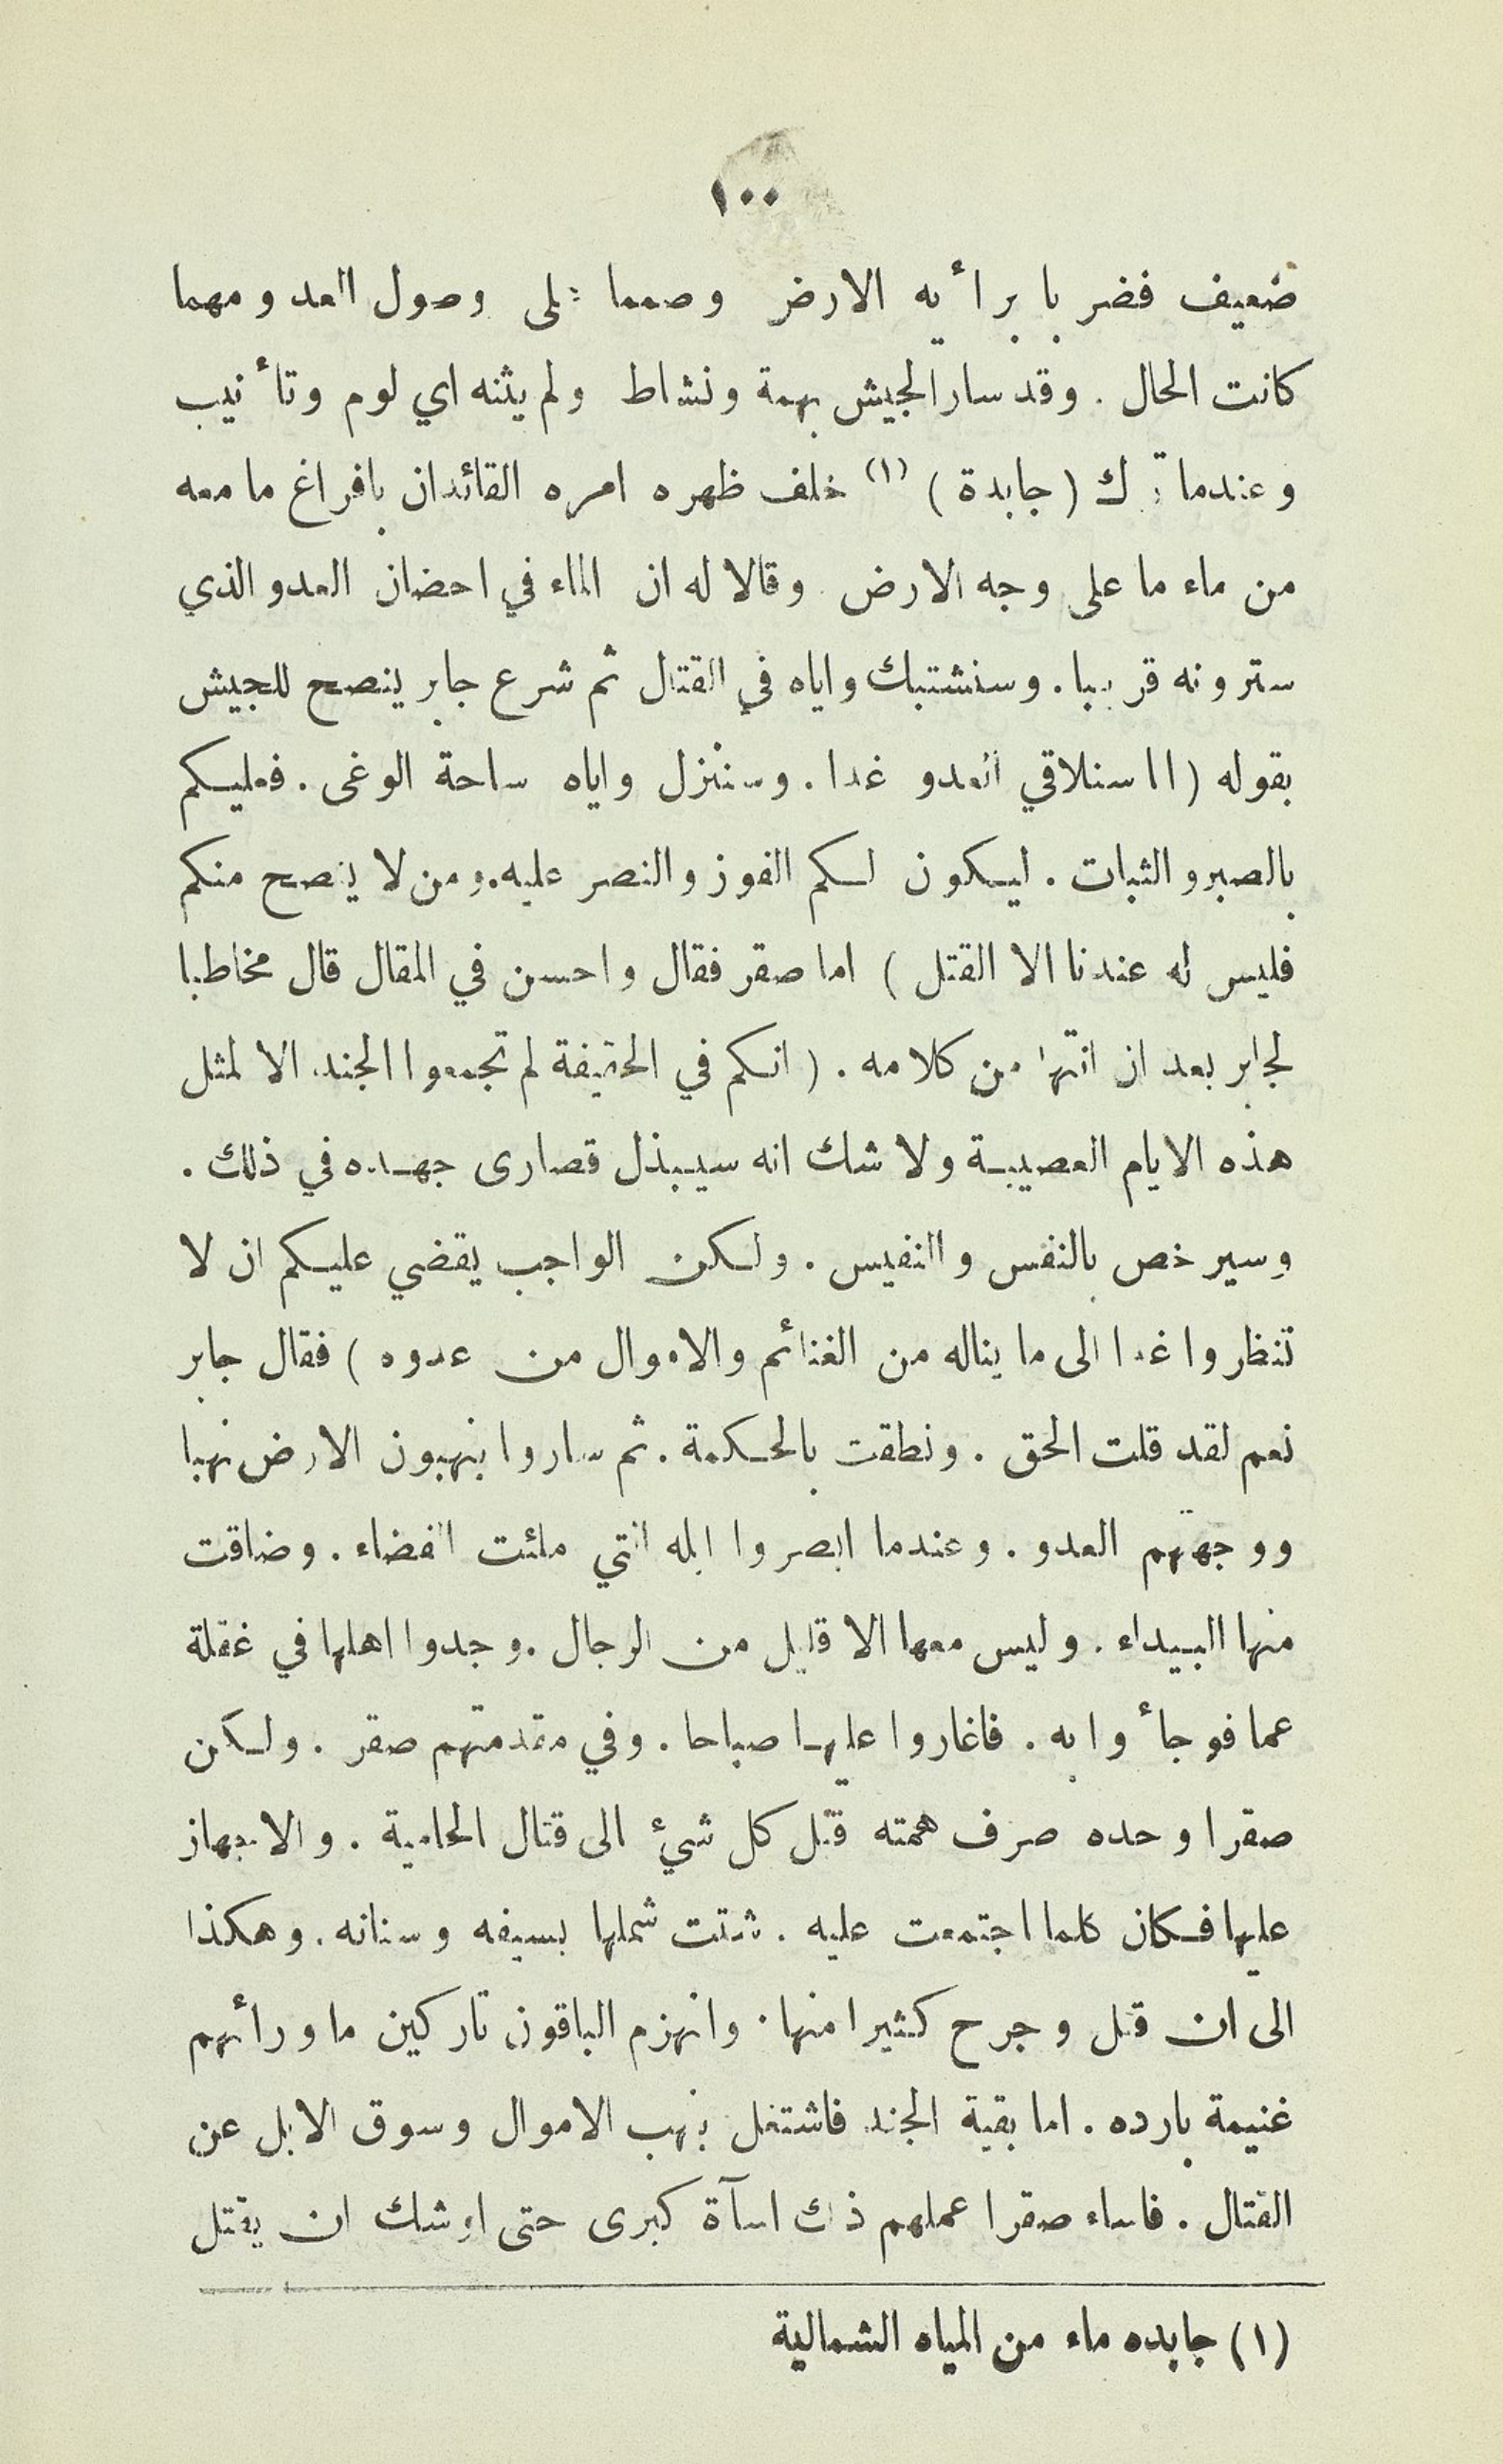 ١٠٠
ضعيف فضربا برأيه الارض وصمما على وصول العدو مهما
كانت الحال . وقد سار الجيش بهمة ونشاط ولم يثنه اي لوم وتأنيب
وعندما ترك (جابدة) (١) خلف ظهره امره القائدان بافراغ ما معه
من ماء ما على وجه الارض وقالا له ان الماء في احضان العدو الذي
سترونه قريبا . وسنشتبك واياه في القتال ثم شرع جابر ينصح للجيش
بقوله (اا سنلاقي العدو غدا . وسننزل واياه ساحة الوغى . فعليكم
بالصبر والثبات . ليكون لكم الفوز والنصر عليه . ومن لا ينصح منكم
فليس له عندنا الا القتل ) اما صقر فقال واحسن في المقال قال مخاطبا
لجابر بعد ان انتها من كلامه . ( انكم في الحقيقة لم تجمعوا الجند الا لمثل
هذه الايام العصيبة ولا شك انه سيبذل قصارى جهده في ذلك .
وسيرخص بالنفس والنفيس . ولكن الواجب يقضي عليكم ان لا
تنظروا غدا الى ما يناله من الغنائم والاموال من عدوه ) فقال جابر
نعم لقد قلت الحق . ونطقت بالحكمة . ثم ساروا ينهبون الارض نهبا
ووجهتهم العدو . وعندما ابصروا ابله التي ملئت الفضاء . وضاقت
منها البيداء . وليس معها الا قليل من الرجال . وجدوا اهلها في غفلة
عما فوجأوا به . فاغاروا عليها صباحا . وفي مقدمتهم صقر . ولكن
صقرا وحده صرف همته قبل كل شئ الى قتال الحامية . والاجهاز
عليها فكان كلما اجتمعت عليه . شتت شملها بسيفه وسنانه . وهكذا
الى ان قتل وجرح كثيرا منها . وانهزم الباقون تاركين ما ورأهم
غنيمة بارده . اما بقية الجند فاشتغل بنهب الاموال وسوق الابل عن
القتال . فاساء صقرا عملهم ذلك اسآة كبرى حتى اوشك ان يقتل
(١) جابده ماء من المياه الشمالية